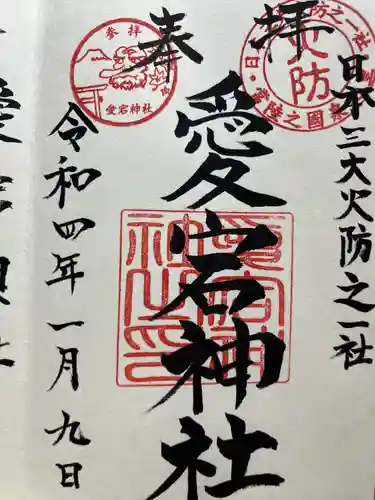 奉拝
日本三大火防之一社
愛宕神社
令和四年一月九日
参拝
愛宕神社
火防
常陸之國